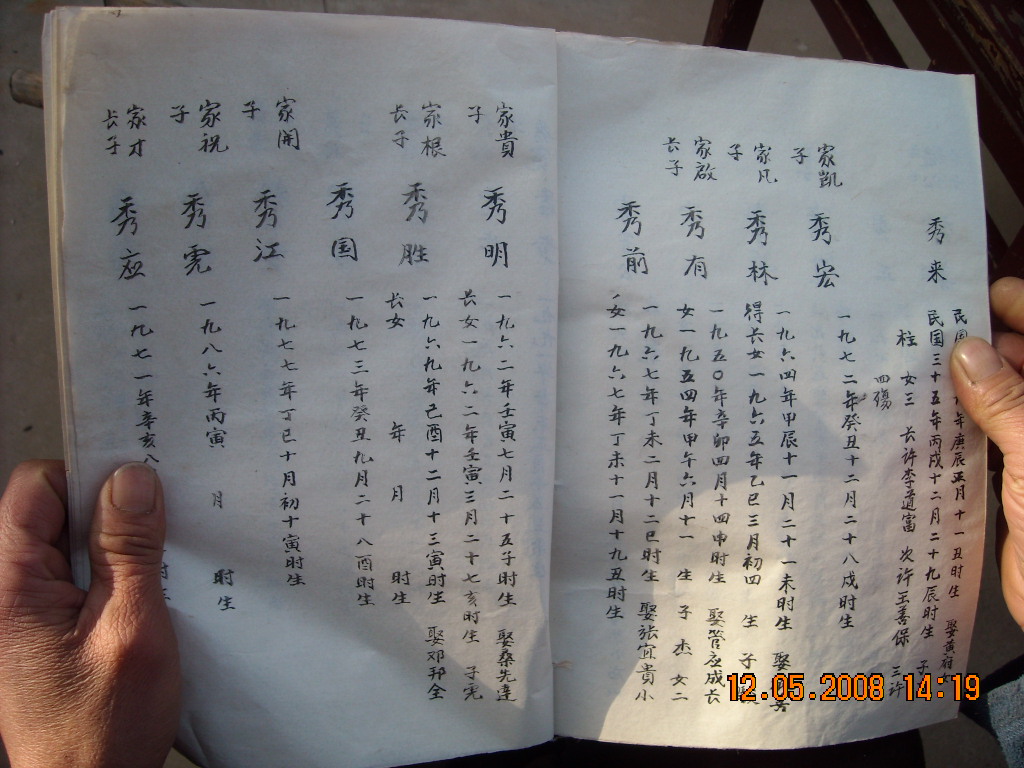 秀来
民国 年庚辰正月十一丑时生 娶黄府
民国三十五年丙戌十二月二十九辰时生 子
柱 女三 长许李道富 次许王善保 三许
四殇
家凯
子
秀宏
一九七二年癸丑十二月二十八戌时生
家凡
子
秀林
一九六四年甲辰十一月二十一未时生 娶
得长女一九六五年乙巳三月初四 生 子
家啟
长子
秀有
一九五〇年辛卯四月十四申时生 娶管应成长
女一九五四年甲午六月十一 生 子 杰 女二
秀前
一九六七年丁未二月十二巳时生 娶张宜贵小
女一九六七年丁未十一月十九丑时生
家貴
子
秀明
一九六二年壬寅七月二十五子时生 娶桑先達
长女一九六二年壬寅三月二十七亥时生 子宪
家根
长子
秀胜
一九六九年己酉十二月十三寅时生 娶邓邦全
长女 年 月 时生
秀国
一九七三年癸丑九月二十八酉时生
家開
子
秀江
一九七七年丁巳十月初十寅时生
家祝
子
秀虎
一九八六年丙寅 月 时生
家才
长子
秀应
一九七一年辛亥八 时生
12.05.2008 14:19